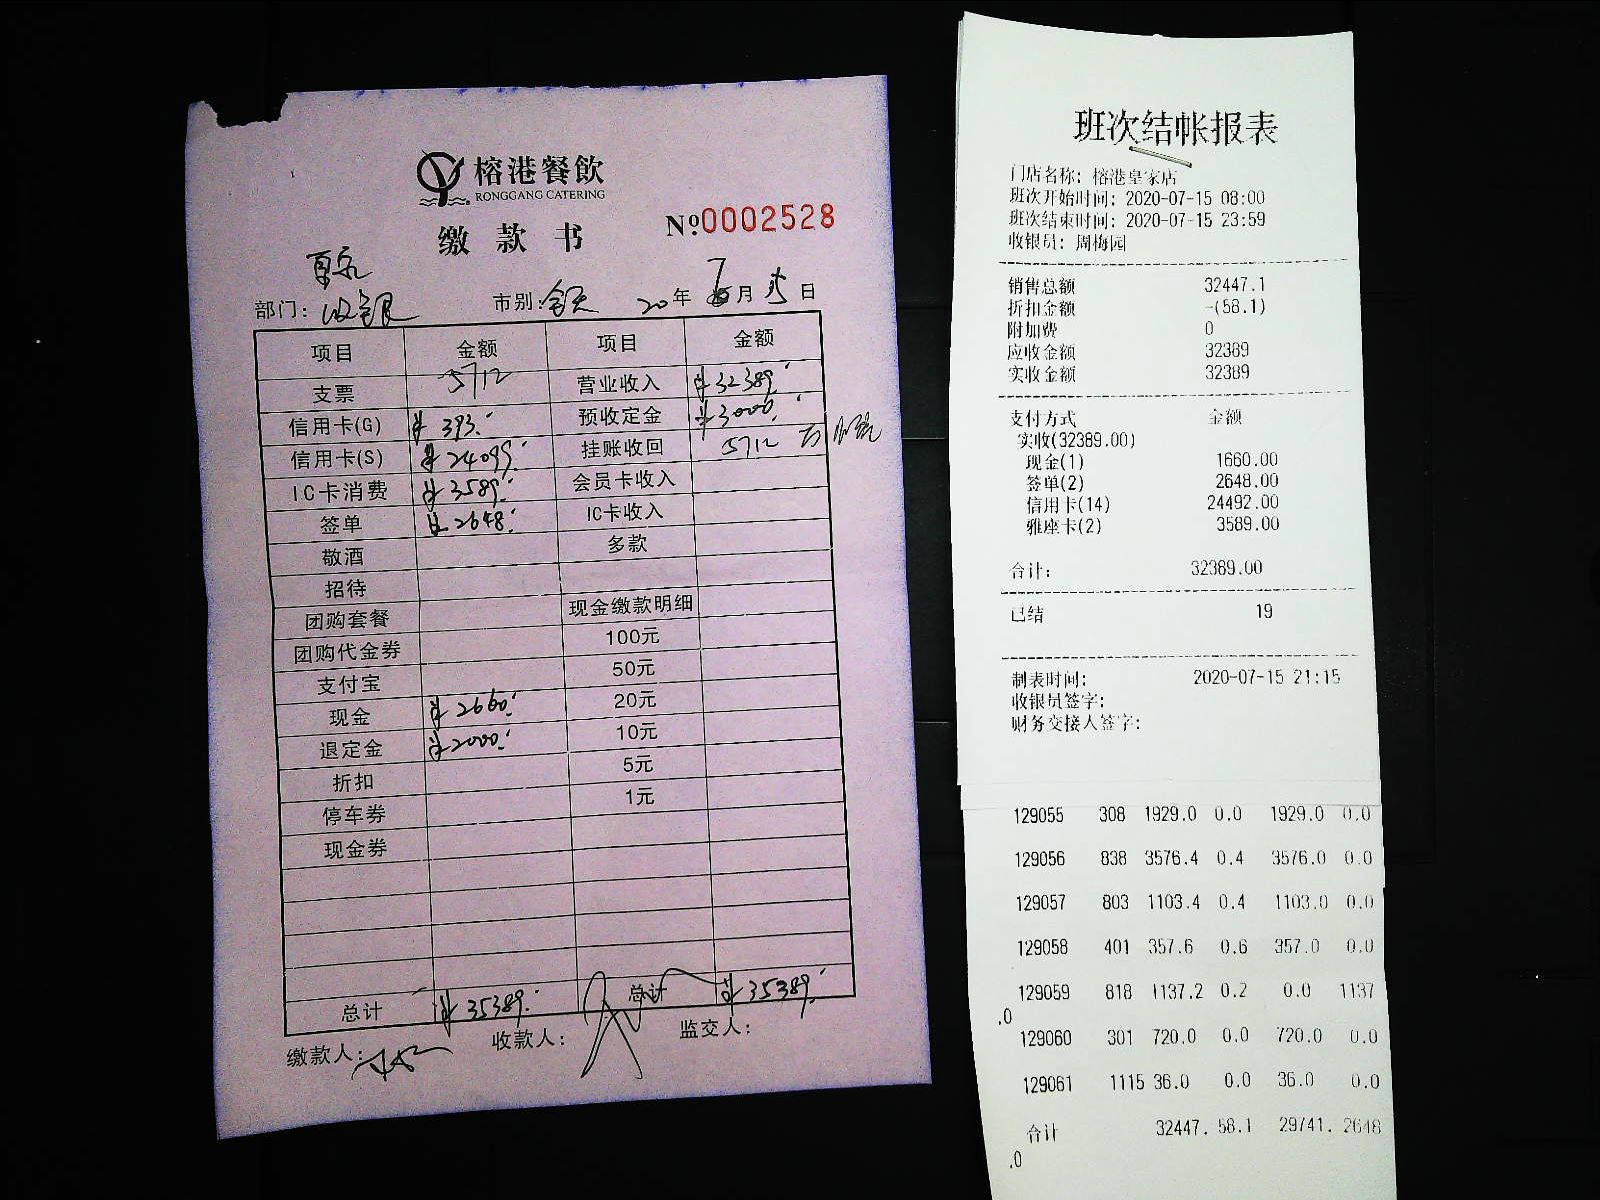 榕港餐飲
RONGGANG CATERING
缴款书
№0002528
部门: 收银 市别: 全天 20年 7月 15日
项目 金额 项目 金额
支票 5712 营业收入 ¥32389.
信用卡(G) ¥393. 预收定金 ¥3000.
信用卡(S) ¥24099. 挂账收回 5712
IC卡消费 ¥3589. 会员卡收入
签单 ¥2648. IC卡收入
敬酒 多款
招待
团购套餐 现金缴款明细
团购代金券 100元
支付宝 50元
现金 ¥2660. 20元
退定金 ¥2000. 10元
折扣 5元
停车券 1元
现金券
总计 ¥35389. 总计 ¥35389.
缴款人: 收款人: 监交人:
班次结帐报表
门店名称: 榕港皇家店
班次开始时间: 2020-07-15 08:00
班次结束时间: 2020-07-15 23:59
收银员: 周梅园
销售总额 32447.1
折扣金额 -(58.1)
附加费 0
应收金额 32389
实收金额 32389
支付方式 金额
实收(32389.00)
现金(1) 1660.00
签单(2) 2648.00
信用卡(14) 24492.00
雅座卡(2) 3589.00
合计: 32389.00
已结 19
制表时间: 2020-07-15 21:15
收银员签字:
财务交接人签字:
129055 308 1929.0 0.0 1929.0 0.0
129056 838 3576.4 0.4 3576.0 0.0
129057 803 1103.4 0.4 1103.0 0.0
129058 401 357.6 0.6 357.0 0.0
129059 818 1137.2 0.2 0.0 1137
.0
129060 301 720.0 0.0 720.0 0.0
129061 1115 36.0 0.0 36.0 0.0
合计 32447. 58.1 29741. 2648
.0